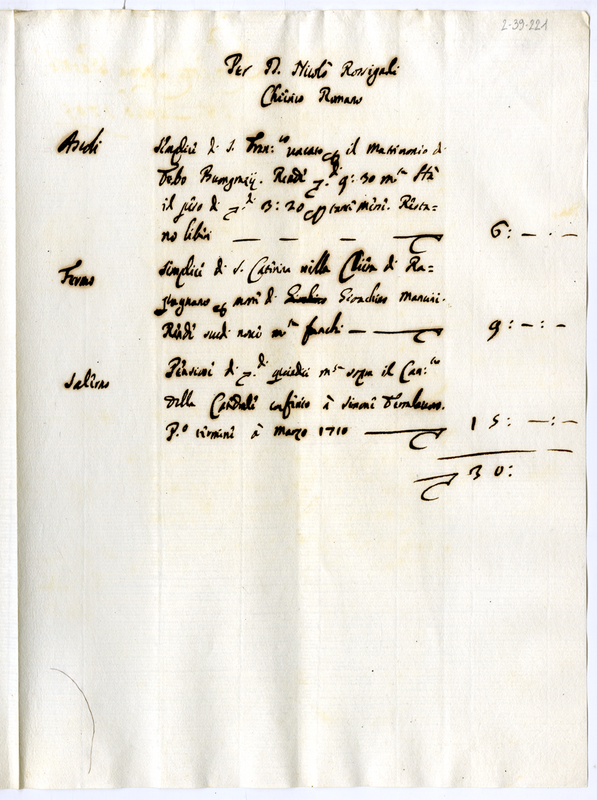 2-39-221
Per D. Nicolò Rossignoli
Chierico Romano
Ascoli
Semplici di S. Fran:co vacato il Matrimonio di
Febo Buongratij. Rendi 9: 30 mta Stà
il peso di 3: 20 Resta=
no liberi 6: — . —
Fermo
Semplici di S. Caterina nella Chiesa di Ra=
pugnano mori di Gionchino Mancini.
Rendi scudi novi mta franchi — 9: — : —
Salerno
Pensioni di quindici mta sopra il Can:to
della Catedrali conferito à Simoni
P.o termini à Marzo 1710 15: — : —
30: